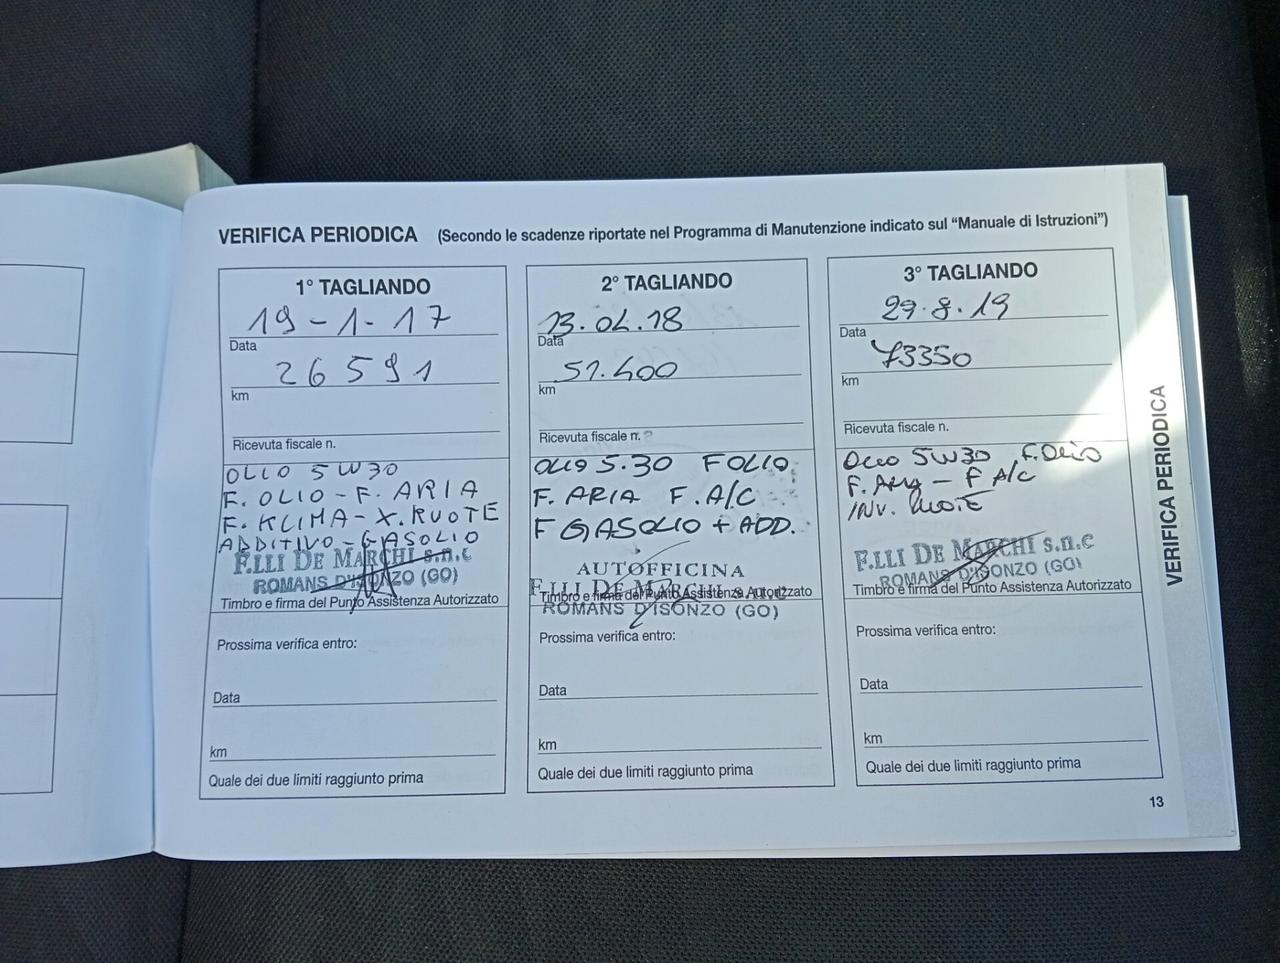 VERIFICA PERIODICA (Secondo le scadenze riportate nel Programma di Manutenzione indicato sul “Manuale di Istruzioni”)
1° TAGLIANDO
19-1-17
Data
26591
km
Ricevuta fiscale n.
OLIO 5W30
F. OLIO - F. ARIA
F. KLIMA - X. RUOTE
ADDITIVO - GASOLIO
F.LLI DE MARCHI s.n.c
ROMANS D'ISONZO (GO)
Timbro e firma del Punto Assistenza Autorizzato
Prossima verifica entro:
Data
km
Quale dei due limiti raggiunto prima
2° TAGLIANDO
13.04.18
Data
51.400
km
Ricevuta fiscale n.
OLIO 5.30 FOLIO
F. ARIA F. A/C
F GASOLIO + ADD.
AUTOFFICINA
F.LLI DE MARCHI s.n.c
Timbro e firma del Punto Assistenza Autorizzato
ROMANS D'ISONZO (GO)
Prossima verifica entro:
Data
km
Quale dei due limiti raggiunto prima
3° TAGLIANDO
29.8.19
Data
73350
km
Ricevuta fiscale n.
OLIO 5W30 F. OLIO
F. ARIA - F A/C
INV. RUOTE
F.LLI DE MARCHI s.n.c
ROMANS D'ISONZO (GO)
Timbro e firma del Punto Assistenza Autorizzato
Prossima verifica entro:
Data
km
Quale dei due limiti raggiunto prima
VERIFICA PERIODICA
13